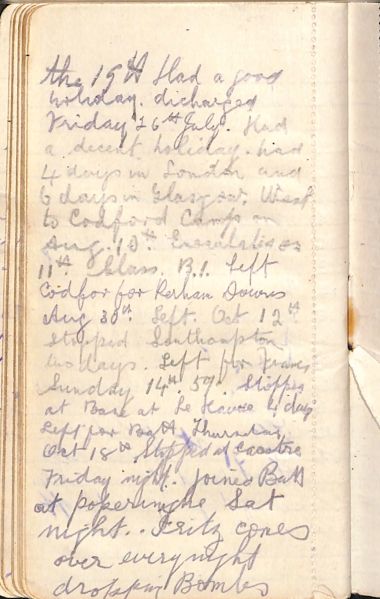 the 19th Had a good
holiday. dicharged
Friday 26th July. Had
a decent holiday. had
4 days in London and
6 days in Glasgow. Went
to Codford Camp on
Aug. 10th.
11th. Class. B.1. Left
Codfor for Perham Downs
Aug 30th. Left. Oct 12th
Stopped Southampton
two days. Left for France
Sunday 14th. Stopped
at Base at Le Havre 4 days
Left for Batt Thursday
Oct 18th. Stopped at
Friday night. Joined Batt
at poperinghe Sat
night.. Fritz comes
over every night
dropping Bombs